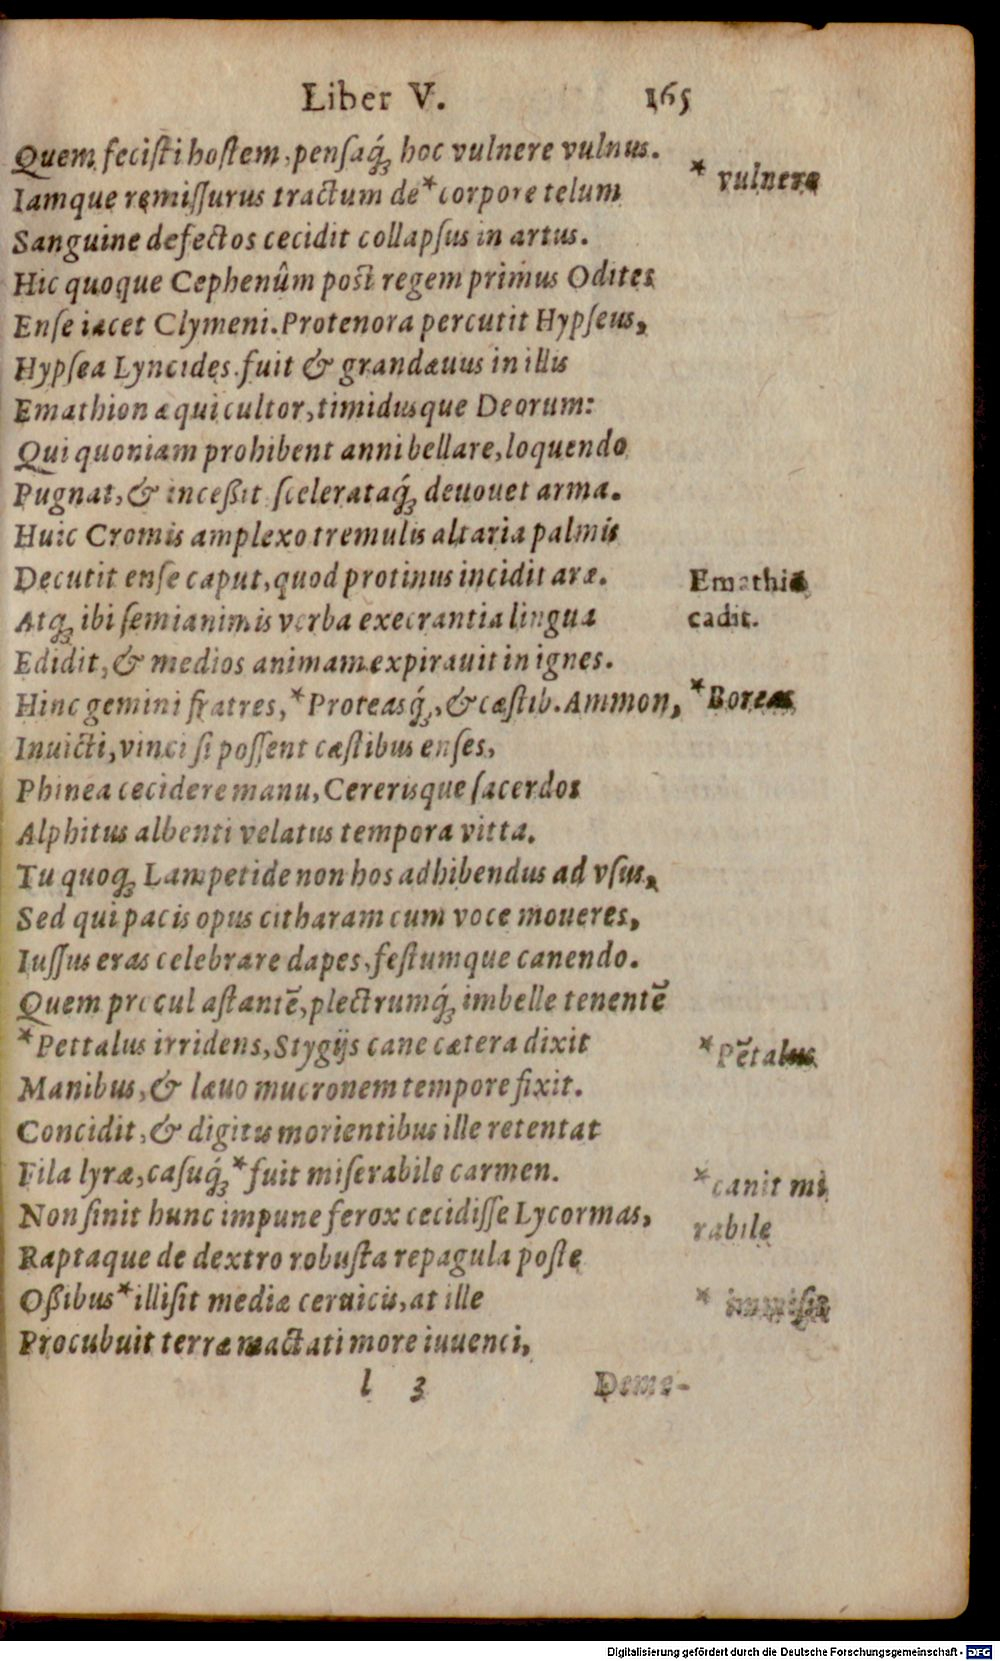 Liber V. 165
Quem fecisti hostem, pensaq́ꝫ hoc vulnere vulnus.
* vulnere
Iamque remissurus tractum de *corpore telum
Sanguine defectos cecidit collapsus in artus.
Hic quoque Cephenûm post regem primus Odites
Ense iacet Clymeni. Protenora percutit Hypseus,
Hypsea Lyncides. fuit & grandæuus in illis
Emathion æqui cultor, timidusque Deorum:
Qui quoniam prohibent anni bellare, loquendo
Pugnat, & inceßit scelerataq́ꝫ deuouet arma.
Huic Cromis amplexo tremulis altaria palmis
Decutit ense caput, quod protinus incidit aræ.
Emathiō
cadit.
Atqꝫ ibi semianimis verba execrantia lingua
Edidit, & medios animam expirauit in ignes.
Hinc gemini fratres, *Proteasq́ꝫ, & cæstib. Ammon,
*Boreas
Inuicti, vinci si possent cæstibus enses,
Phinea cecidere manu, Cererisque sacerdos
Alphitus albenti velatus tempora vitta.
Tu quoqꝫ Lampetide non hos adhibendus ad vsus,
Sed qui pacis opus citharam cum voce moueres,
Iussus eras celebrare dapes, festumque canendo.
Quem procul astantē, plectrumq́ꝫ imbelle tenentē
*Pettalus irridens, Stygijs cane cætera dixit
*Pētalus
Manibus, & læuo mucronem tempore fixit.
Concidit, & digitis morientibus ille retentat
Fila lyræ, casuq́ꝫ *fuit miserabile carmen.
*canit mi
rabile
Non sinit hunc impune ferox cecidisse Lycormas,
Raptaque de dextro robusta repagula poste
Oßibus *illisit mediæ ceruicis, at ille
*
Procubuit terræ mactati more iuuenci,
l 3 Deme-
Digitalisierung gefördert durch die Deutsche Forschungsgemeinschaft - DFG